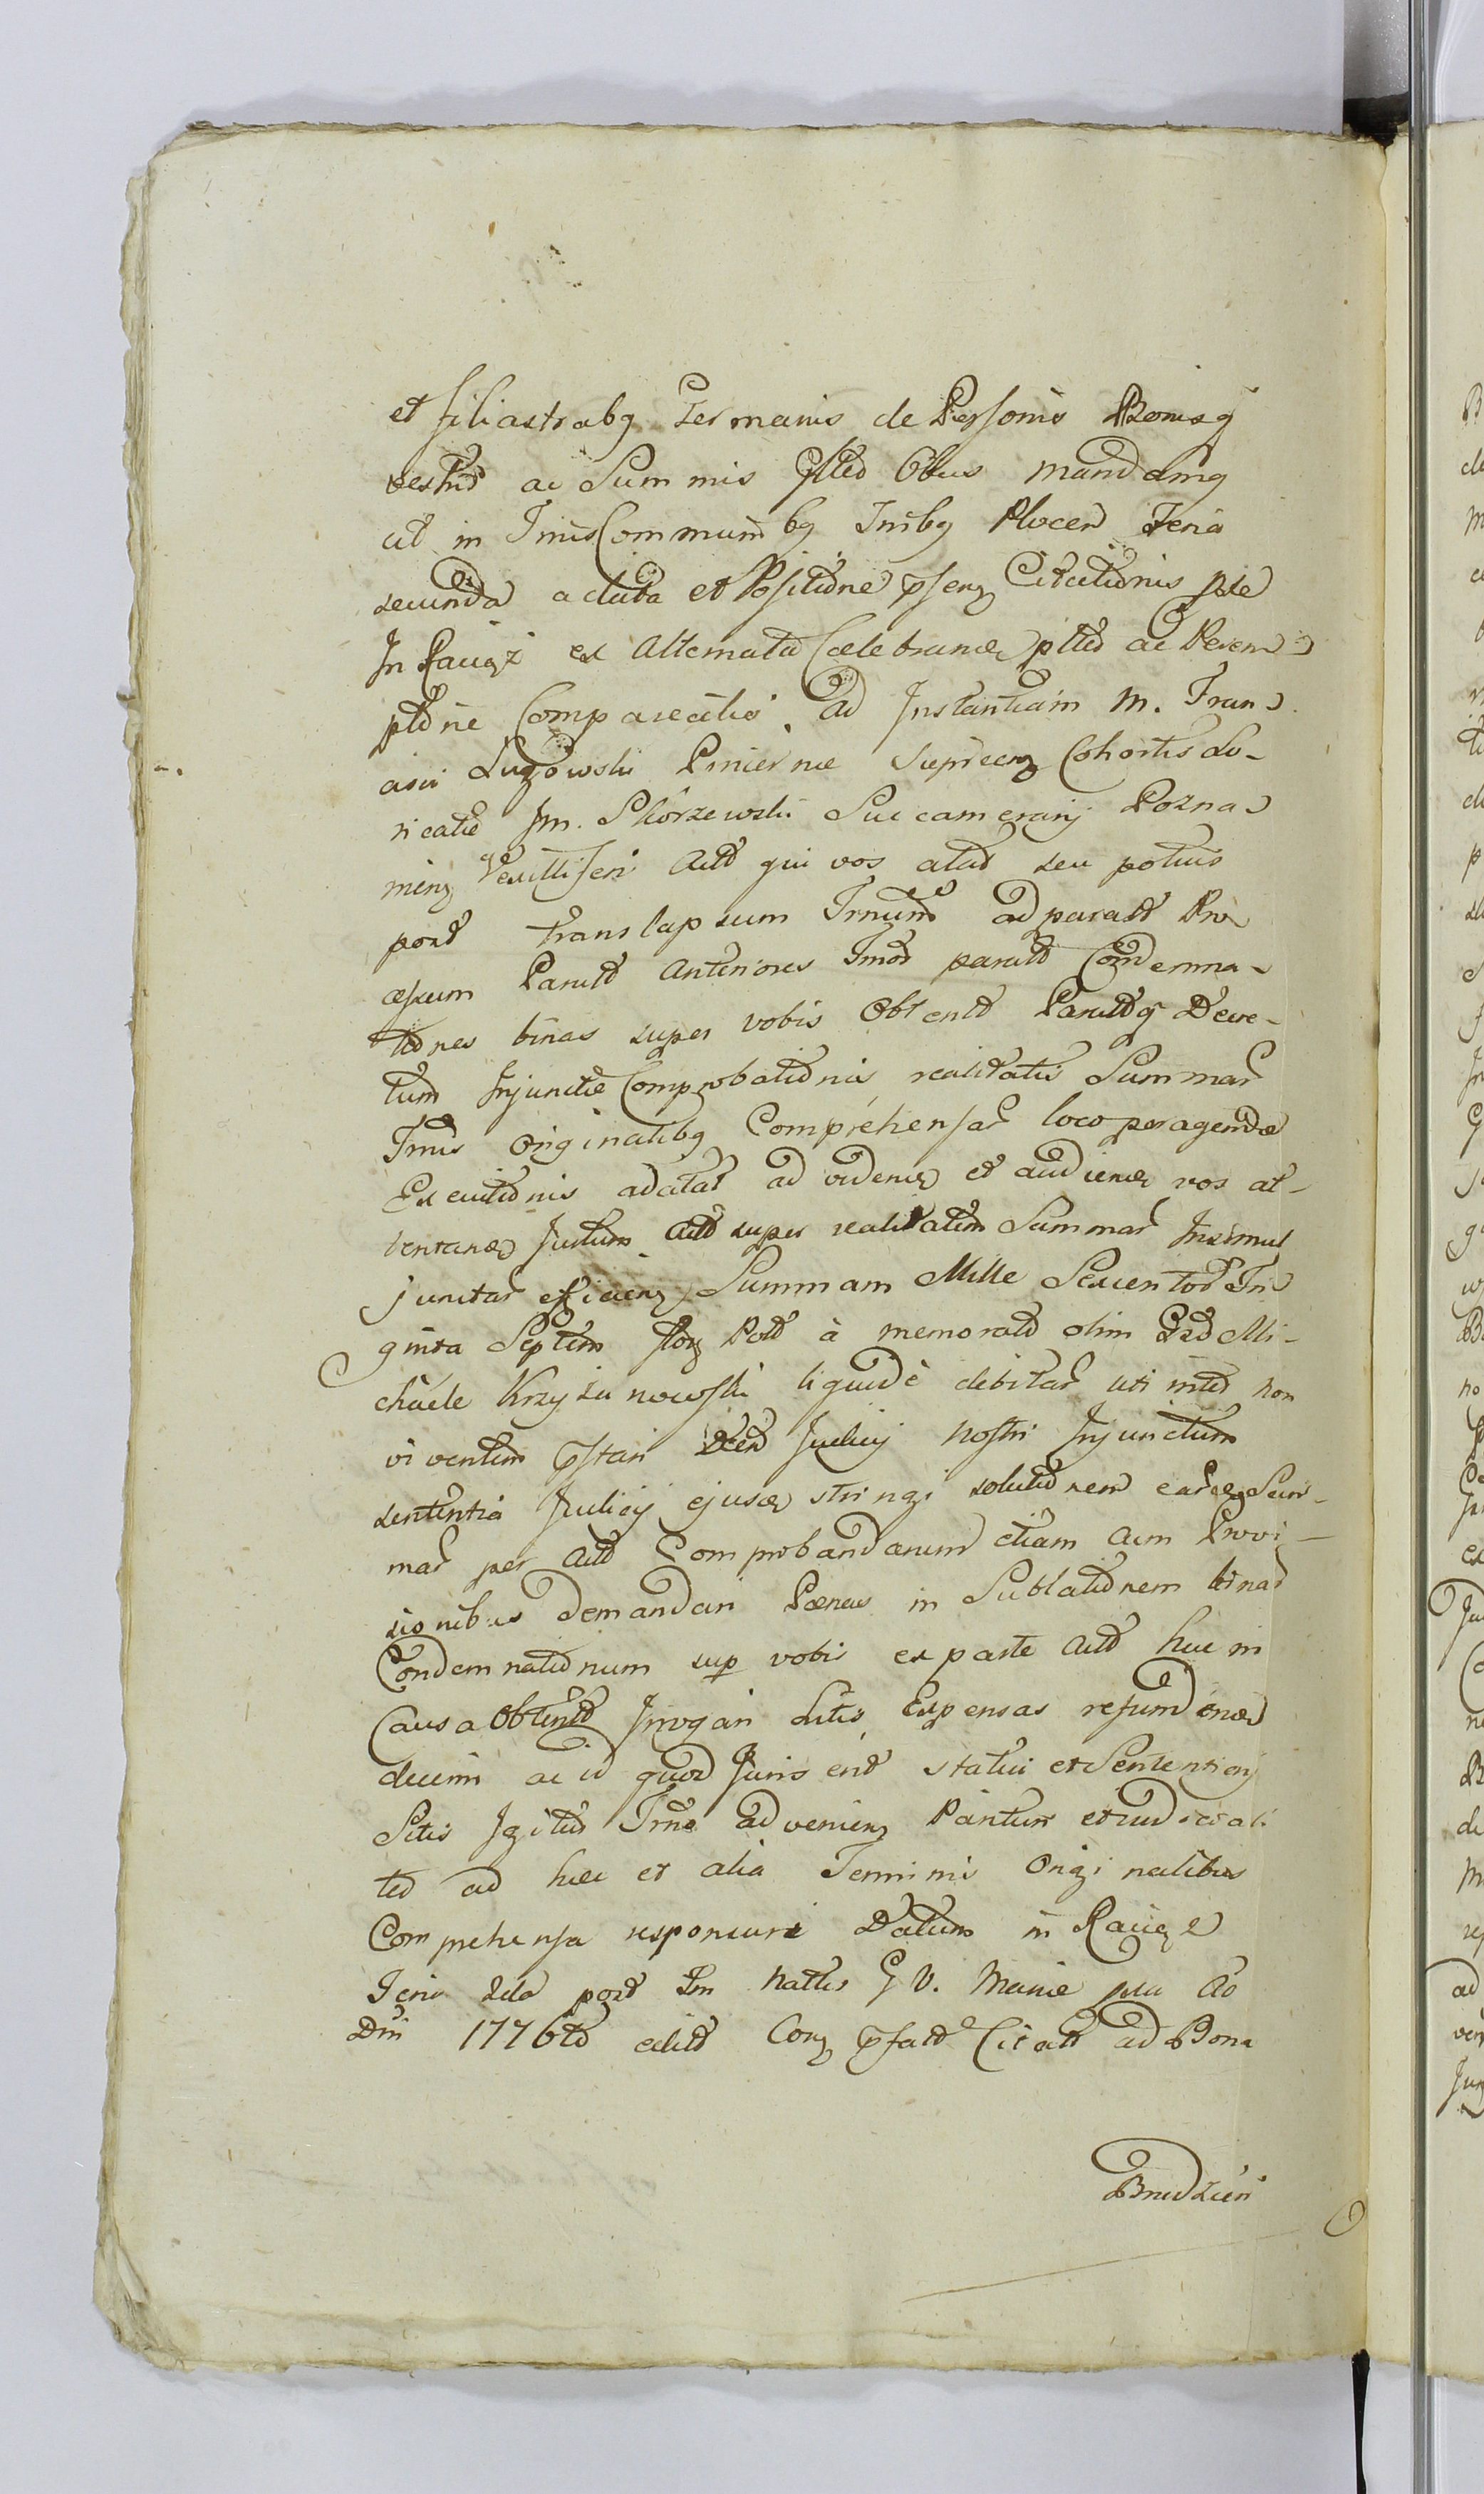 et filiastrabq Germanis de Personis Bonisq
vestris ac Summis Oibus mandamq
ut in Tnis Communibq Tnibq Plocen Feria
secunda a data et Positione psenq Citationis
In Raciąż ex Alternata Celebrand ac Perem-
ptorie Compareatis Ad Instantiam M. Fran-
cisci Ługowski Pincernæ Cohortis Lo-
ricatæ Jm. Skorzewski Succamerarij Pozna-
nienq Vexilliferi Actd qui vos alias seu potius
post translapsum Tnum ad parald Pro
cessum Paruld Anteriores Tmos paruld Condemna-
tiones binas super vobis Obtentd Paruldq Decre-
tum Injunctæ Comprobationis realitatis Summar
Tnis Originalibq Comprehensar loco peragendæ
Executionis adatat ad videnđ et audienđ vos at-
tentanđ Justum Actd super realitatem Summar Insimul
junctar efficienq Summam Mille Sexcentor Tri
ginta Septem florq Pold à memorato olim Gd Mi-
chaele Krzyżanowski liquidè debitar uti inter non
viventem pstari Decd Judicij nostri Injunctum
sententia Judicij ejusd stringi solutionem earumq Sum-
mar per Actd Comprobandarum etiam cum Provi-
sionibus demandari Pænas in Sublationem binar
Condemnationum sup vobis ex parte Actd huc in
Causa Obtentd Irrogari Litis Expensas refundend
decerni ac id quod Juris erit statui et Sentention
Sitis Igitur Tno advenienq Parituri et iudiciali
ter ad hæc et alia Terminis Originalibus
Comprehensa responsuri Datum in Raciąż
Feria 2da post Fm Nattis G V. Mariæ pxa Ao
Dni 1776to edit Conq pfatd Citatd ad Bona
Brudzeń